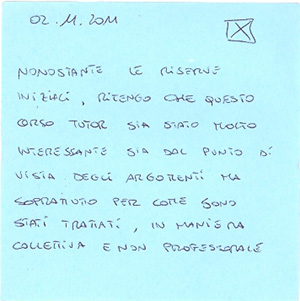 02.11.2011
NONOSTANTE LE RISERVE
INIZIALI, RITENGO CHE QUESTO
CORSO TUTOR SIA STATO MOLTO
INTERESSANTE SIA DAL PUNTO DI
VISTA DEGLI ARGOMENTI MA
SOPRATUTTO PER COME SONO
STATI TRATTATI, IN MANIERA
COLLETTIVA E NON PROFESSORALE